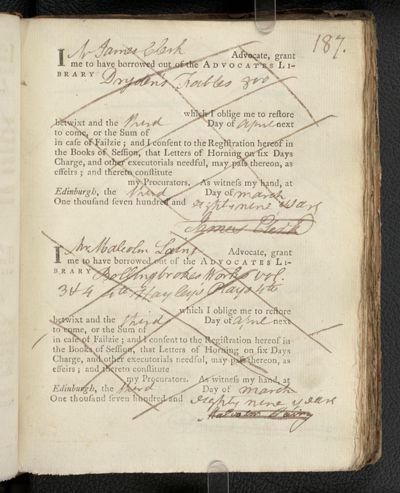 187.
I Mr James Clerk Advocate, grant
me to have borrowed out of the ADVOCATES LI-
BRARY Drydens Fables 8vo
which I oblige me to reſtore
betwixt and the third Day of April next
to come, or the Sum of
in caſe of Failzie ; and I conſent to the Regiſtration hereof in
the Books of Seſſion, that Letters of Horning on ſix Days
Charge, and other executorials needful, may paſs thereon, as
effeirs ; and thereto conſtitute
my Procurators. As witneſs my hand, at
Edinburgh, the third Day of march
One thouſand ſeven hundred and eighty nine years
James Clerk
I Mr Malcolm Laing Advocate, grant
me to have borrowed out of the ADVOCATES LI-
BRARY Bollingbrokes Works vol.
3 & 4 4to Hayley's Plays 4to
which I oblige me to reſtore
betwixt and the third Day of April next
to come, or the Sum of
in caſe of Failzie ; and I conſent to the Regiſtration hereof in
the Books of Seſſion, that Letters of Horning on ſix Days
Charge, and other executorials needful, may paſs thereon, as
effeirs ; and thereto conſtitute
my Procurators. As witneſs my hand, at
Edinburgh, the third Day of march
One thouſand ſeven hundred and eighty nine years
Malcolm Laing